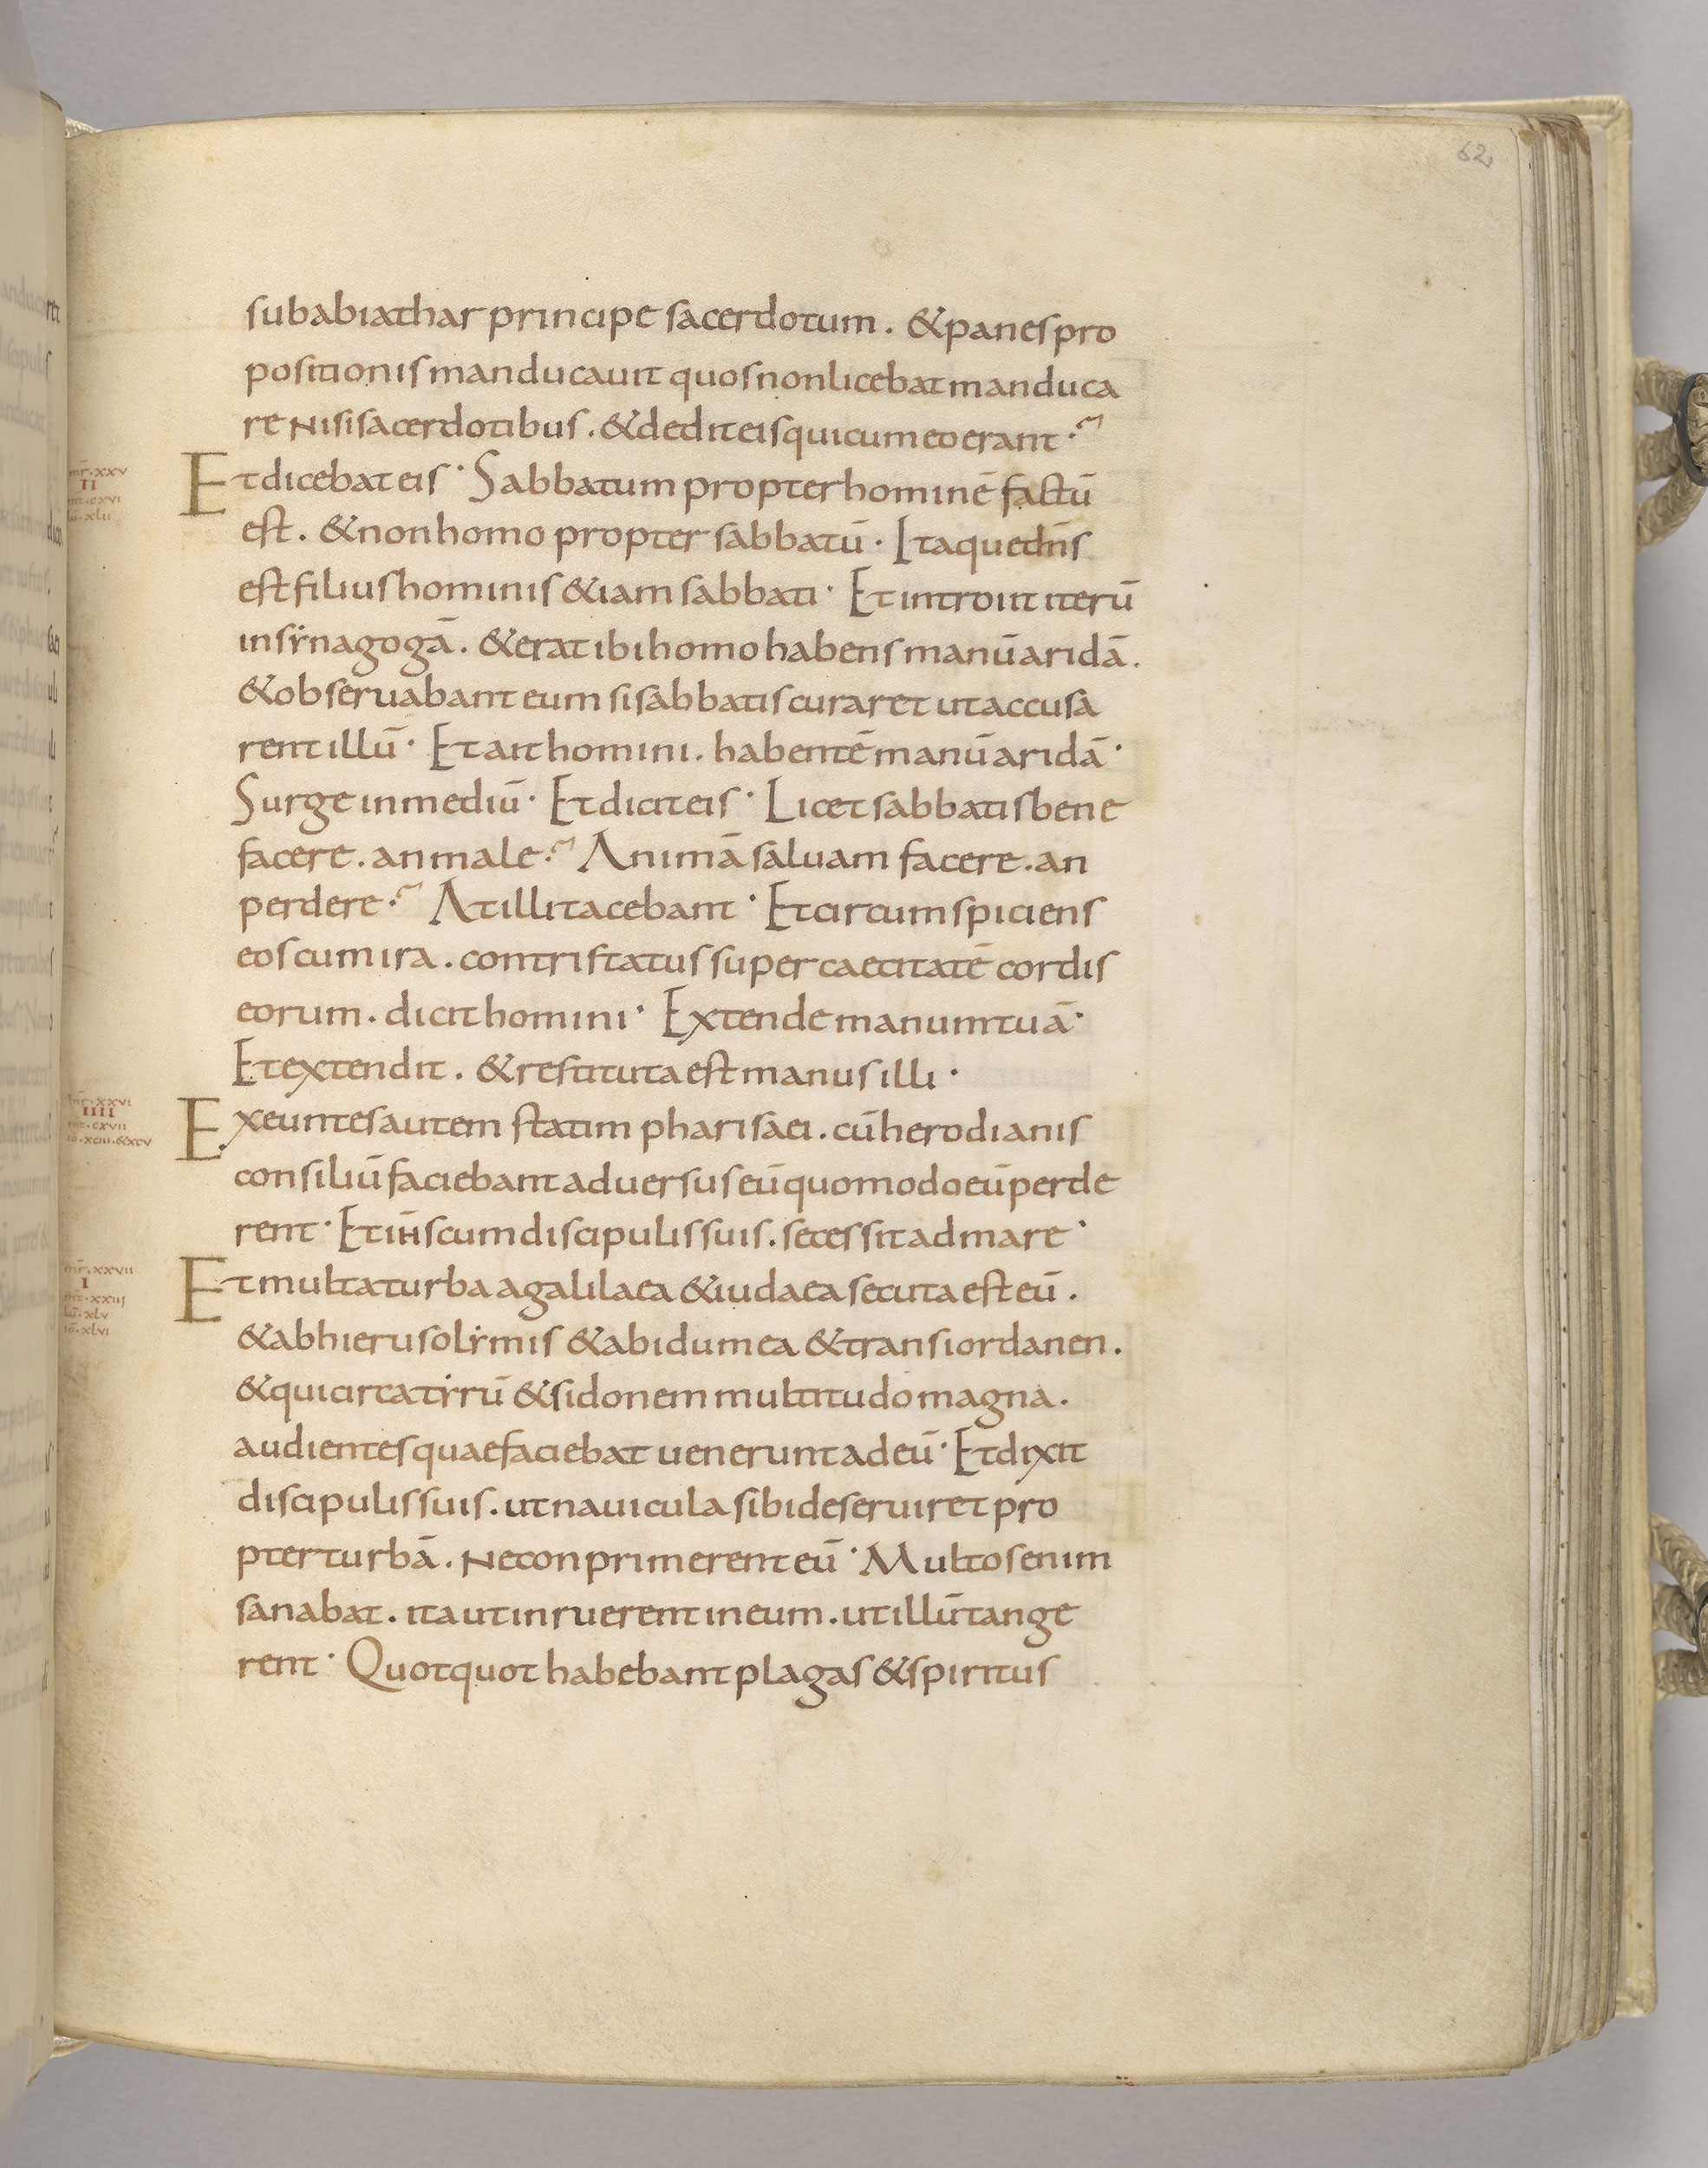 62
sub abiathar principe sacerdotum. & panes pro
positionis manducauit quos non licebat manduca
re nisi sacerdotibus. & dedit eis qui cum eo erant
mr. xxv
II
mt. cxvi
lu. xlii
Et dicebat eis· Sabbatum propter hominē factū
est. & non homo propter sabbatū· Itaque dn̄s
est filius hominis &iam sabbati· Et introiit iterū
in synagogā. & erat ibi homo habens manū aridā.
& obseruabant eum si sabbatis curaret ut accusa
rent illū· Et ait homini. habentē manū aridā·
Surge in mediū· Et dicit eis· Licet sabbatis bene
facere. an male? Animā saluam facere. an
perdere? At illi tacebant· Et circumspiciens
eos cum ira. contristatus super caecitatē cordis
eorum. dicit homini· Extende manum tuā·
Et extendit. & restituta est manus illi·
mr. xxvi
IIII
mt. cxvii
io. xciii. & xcv
Exeuntes autem statim pharisaei. cū herodianis
consiliū faciebant aduersus eū quomodo eū perde
rent· Et ih̄s cum discipulis suis. secessit ad mare·
mr. xxvii
I
mt. xxiii
lu. xlv
io. xlvi
Et multa turba a galilaea & iudaea secuta est eū.
& ab hierusolymis & ab idumea & trans iordanen.
& qui circa tyrū & sidonem multitudo magna.
audientes quae faciebat uenerunt ad eū· Et dixit
discipulis suis. ut nauicula sibi deseruiret pro
pter turbā. ne conprimerent eū· Multos enim
sanabat. ita ut inruerent in eum. ut illū tange
rent· Quotquot habebant plagas & spiritus